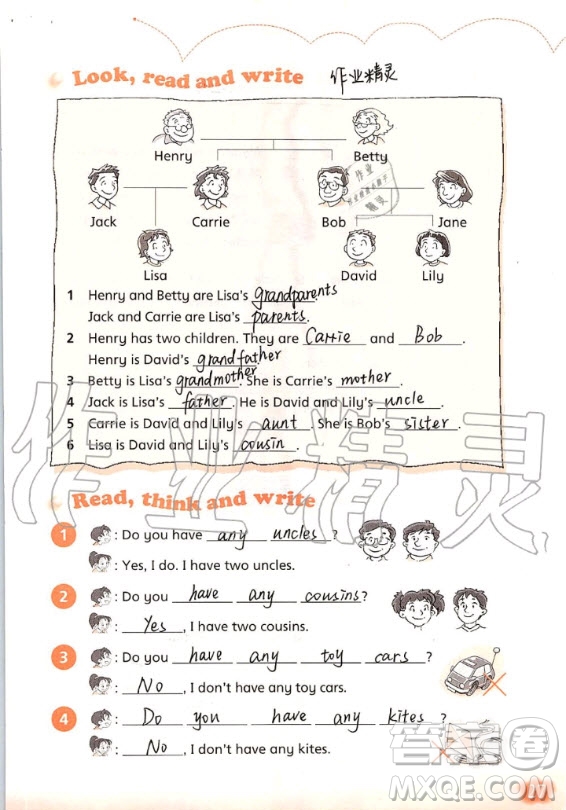 Look, read and write 作业精灵
Henry Betty
Jack Carrie Bob Jane
Lisa David Lily
1 Henry and Betty are Lisa's grandparents.
Jack and Carrie are Lisa's parents.
2 Henry has two children. They are Carrie and Bob.
Henry is David's grandfather
3 Betty is Lisa's grandmother. She is Carrie's mother.
4 Jack is Lisa's father. He is David and Lily's uncle.
5 Carrie is David and Lily's aunt. She is Bob's sister.
6 Lisa is David and Lily's cousin.
Read, think and write
1 : Do you have any uncles ?
: Yes, I do. I have two uncles.
2 : Do you have any cousins?
: Yes, I have two cousins.
3 : Do you have any toy cars ?
: No, I don't have any toy cars.
4 : Do you have any kites ?
: No, I don't have any kites.
作业精灵
答案圈
MXQE.COM